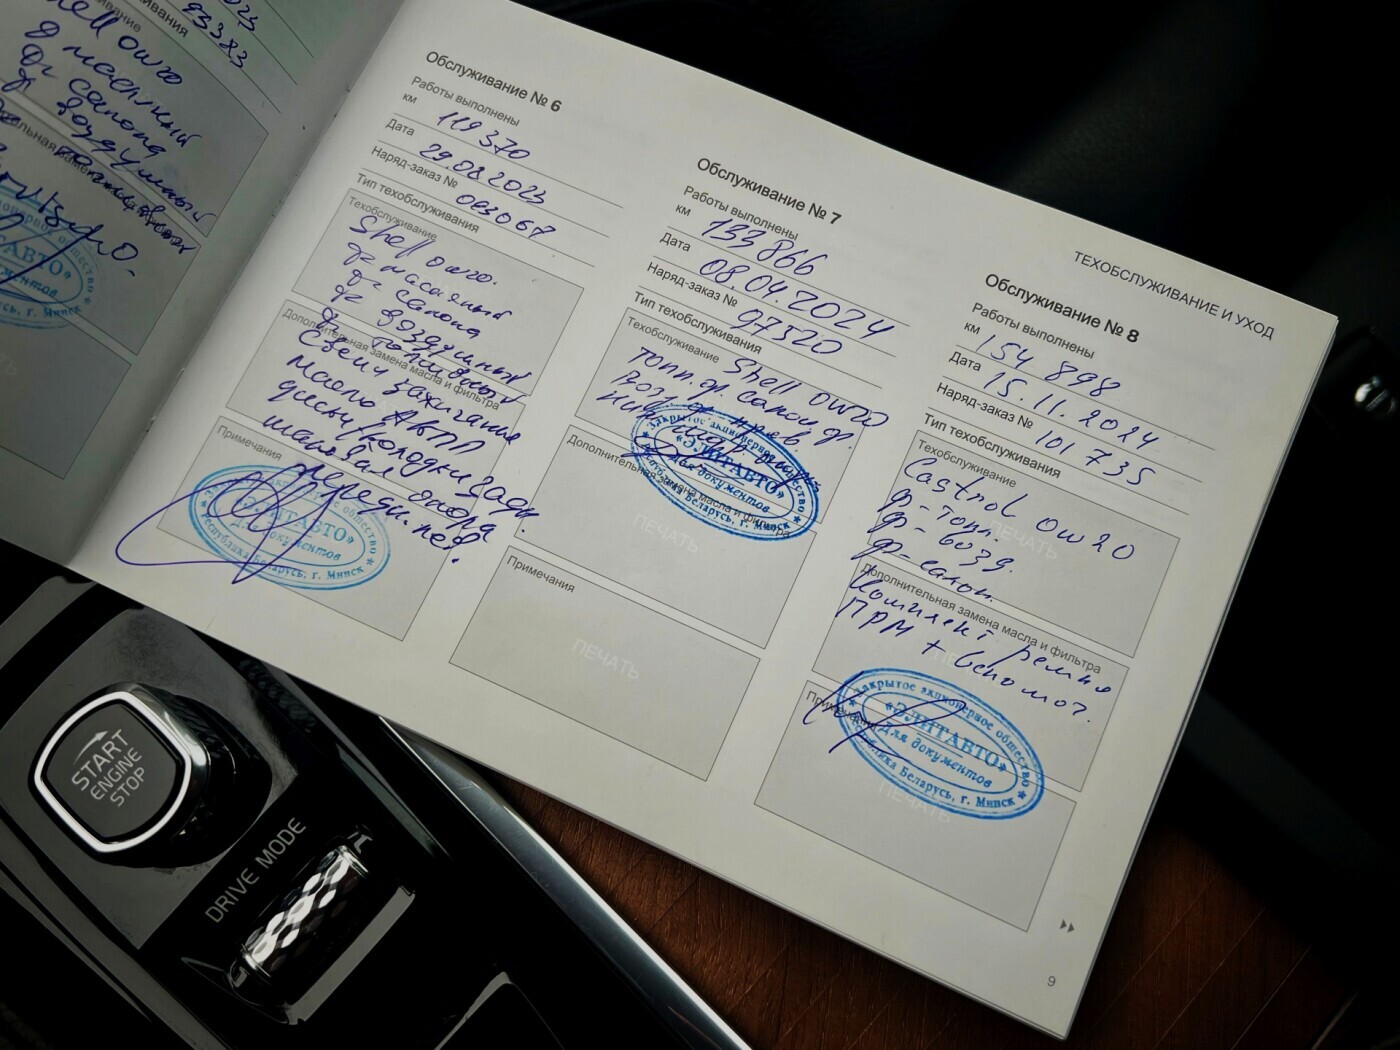 93383
Shell 0W20
ф масляный
ф. салона
ф воздушный
Обслуживание № 6
Работы выполнены
км
119370
Дата
29.08.2023
Наряд-заказ №
083067
Тип техобслуживания
Техобслуживание
Shell 0W20.
ф. масляный
ф. салона
ф. воздушный
ф. топливный
Дополнительная замена масла и фильтра
Свечи зажигания
масло АКПП
диски/колодки зад.
шаровая опора
Примечания
передн. лев.
Закрытое акционерное общество
«ЭЛИТАВТО»
Для документов
Республика Беларусь, г. Минск
Обслуживание № 7
Работы выполнены
км
133 866
Дата
08.04.2024
Наряд-заказ №
97520
Тип техобслуживания
Техобслуживание
Shell 0W20
топл. ф. салон ф.
Закрытое акционерное общество
«ЭЛИТАВТО»
Для документов
Республика Беларусь, г. Минск
Дополнительная замена масла и фильтра
ПЕЧАТЬ
Примечания
ПЕЧАТЬ
ТЕХОБСЛУЖИВАНИЕ И УХОД
Обслуживание № 8
Работы выполнены
км
154 898
Дата
15.11.2024
Наряд-заказ №
101 735
Тип техобслуживания
Техобслуживание
Castrol 0W20
ф-топл.
ф-возд.
ф-салон.
ПЕЧАТЬ
Дополнительная замена масла и фильтра
Комплект ремня
ПРМ + вспомог.
Примечания
Закрытое акционерное общество
«ЭЛИТАВТО»
Для документов
Республика Беларусь, г. Минск
ПЕЧАТЬ
9
START
ENGINE
STOP
DRIVE MODE